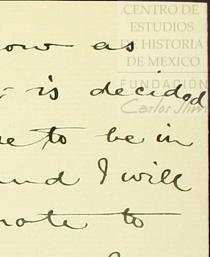 CENTRO DE
ESTUDIOS
DE HISTORIA
DE MEXICO
FUNDACIÓN
Carlos Slim
now as
is decided
to be in
and I will
note to